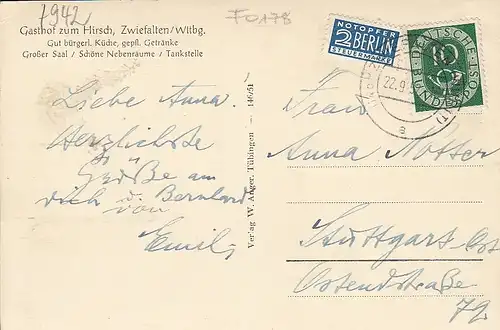 7942
F0178
Gasthof zum Hirsch, Zwiefalten/Wttbg.
Gut bürgerl. Küche, gepfl. Getränke
Großer Saal / Schöne Nebenräume / Tankstelle
NOTOPFER
2 BERLIN
STEUERMARKE
DEUTSCHE BUNDESPOST
10
22.9.
a
Liebe Anna.
Herzlichste
Grüße an
dich u. Bernhard
von
Emil
Verlag W. Anger, Tübingen — 146/51
Frau
Anna Notter
Stuttgart-Ost
Ostendstraße
79